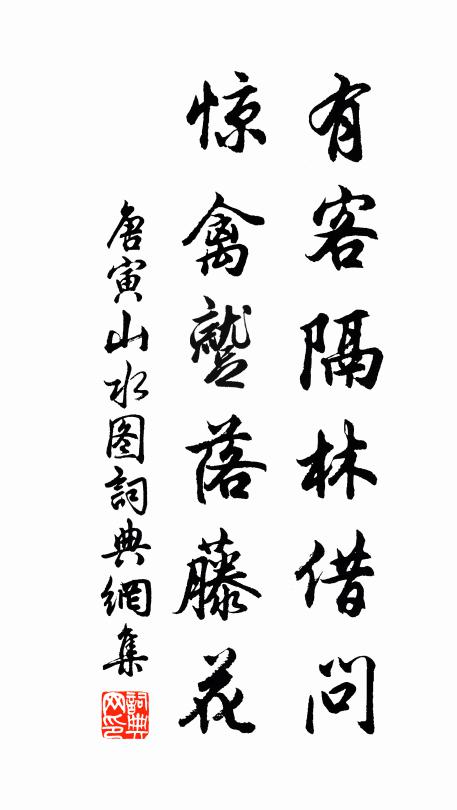 有客隔林借问
惊禽蹵落藤花
唐寅山水图詞典網集
詞典网印